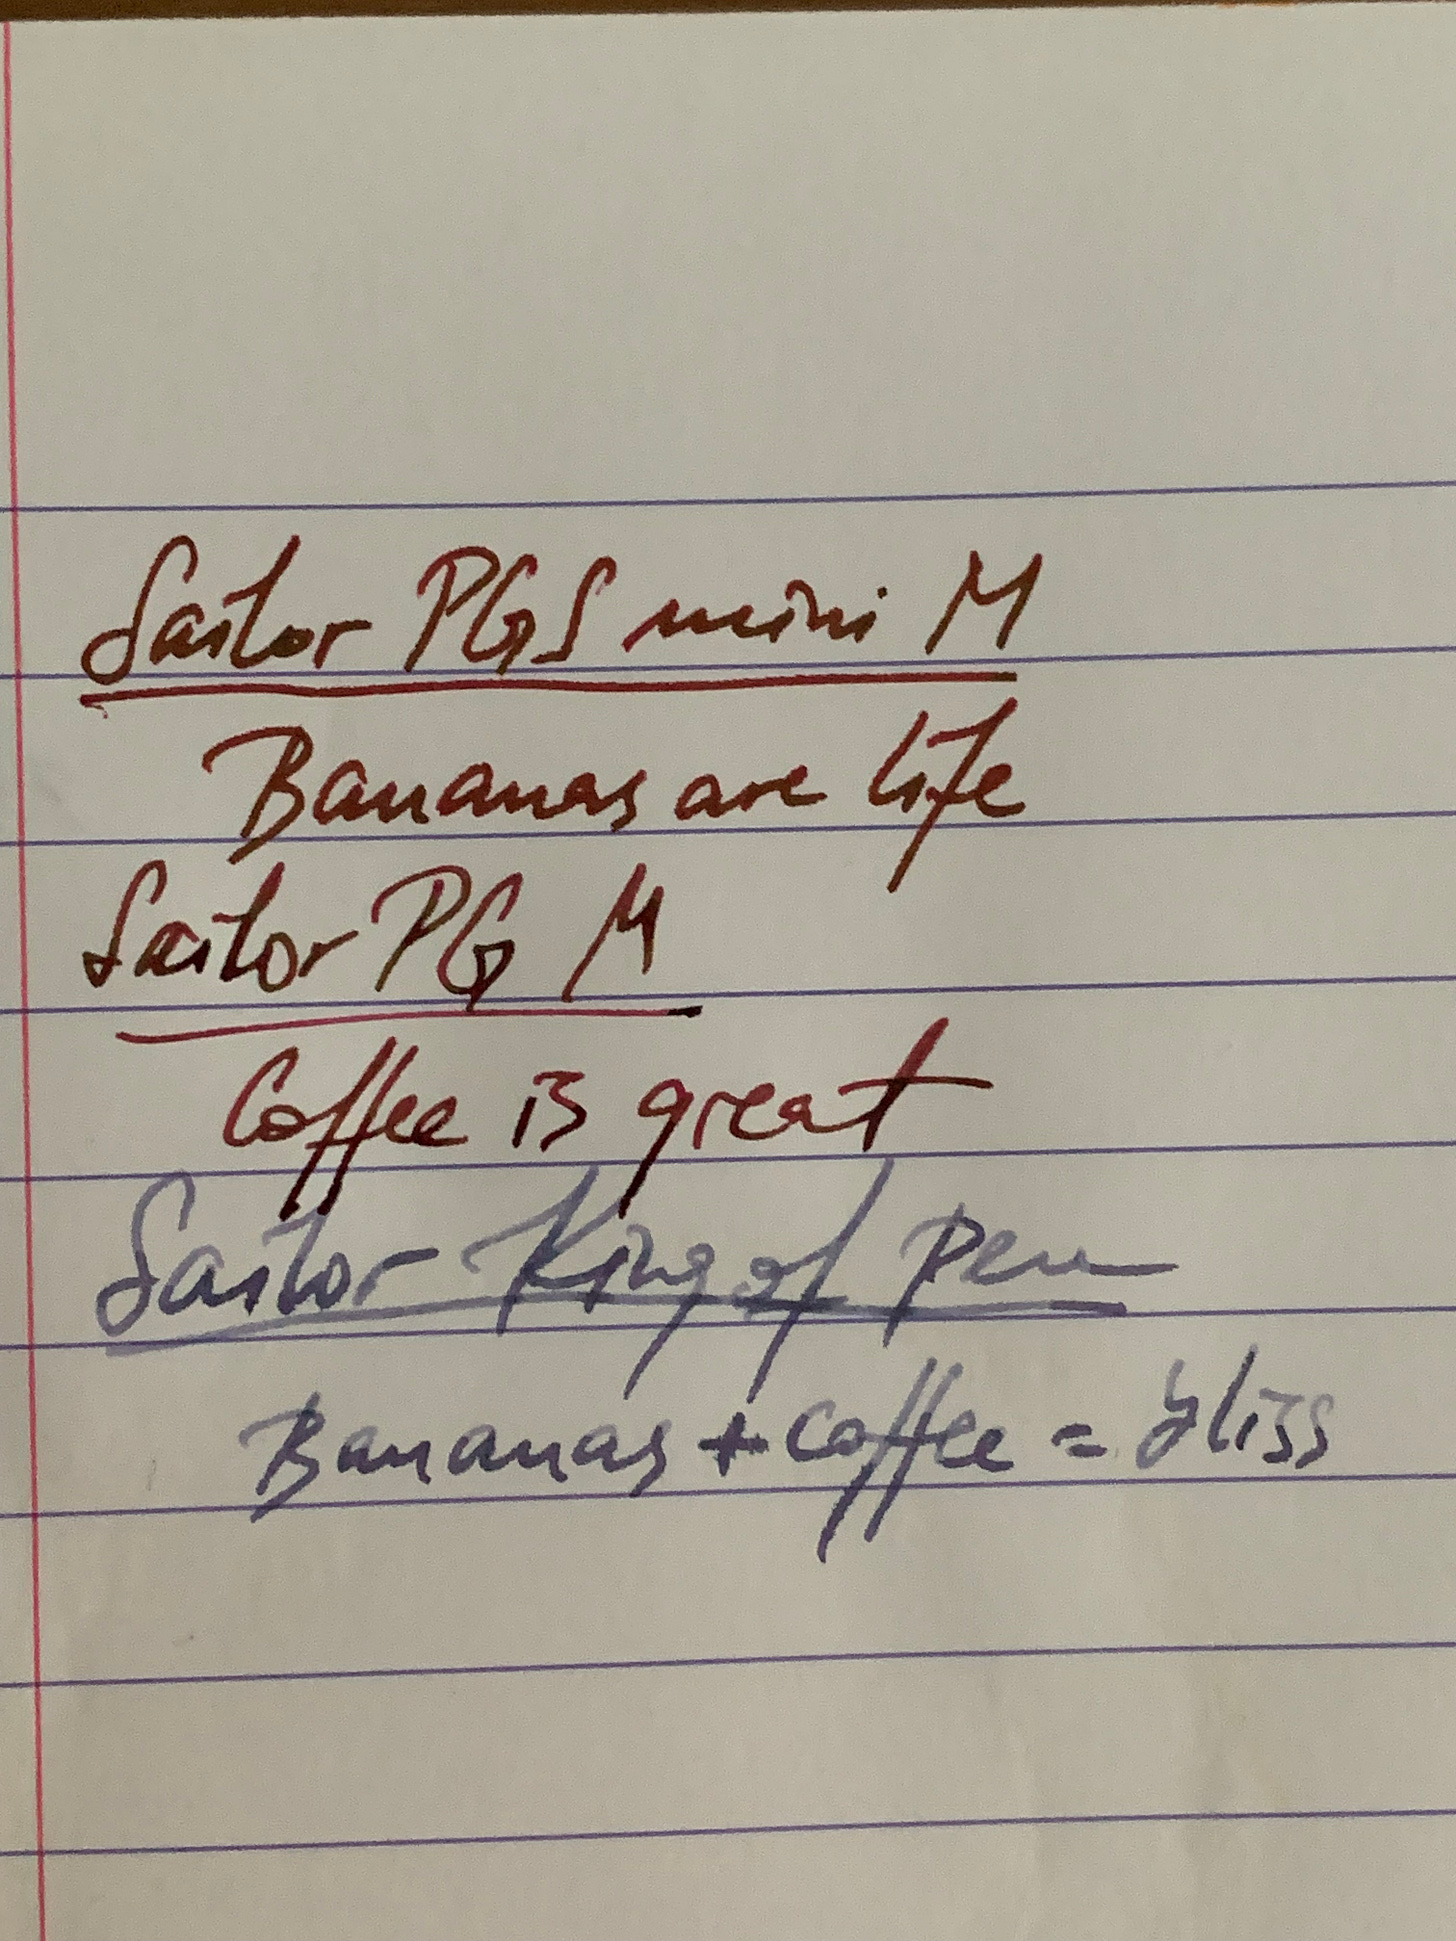 Sailor PGS mini M
Bananas are life
Sailor PG M
Coffee is great
Sailor King of Pen
Bananas + Coffee = bliss